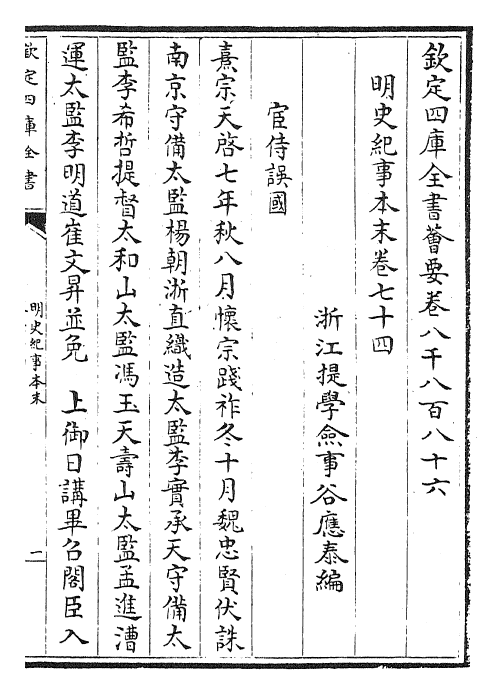 欽定四庫全書薈要卷八千八百八十六
明史紀事本末卷七十四
浙江提學僉事谷應泰編
宦侍誤國
熹宗天啓七年秋八月懷宗踐祚冬十月魏忠賢伏誅
南京守備太監楊朝浙直織造太監李實承天守備太
監李希哲提督太和山太監馮玉天壽山太監孟進漕
運太監李明道崔文昇並免　上御日講畢召閣臣入
欽定四庫全書
明史紀事本末